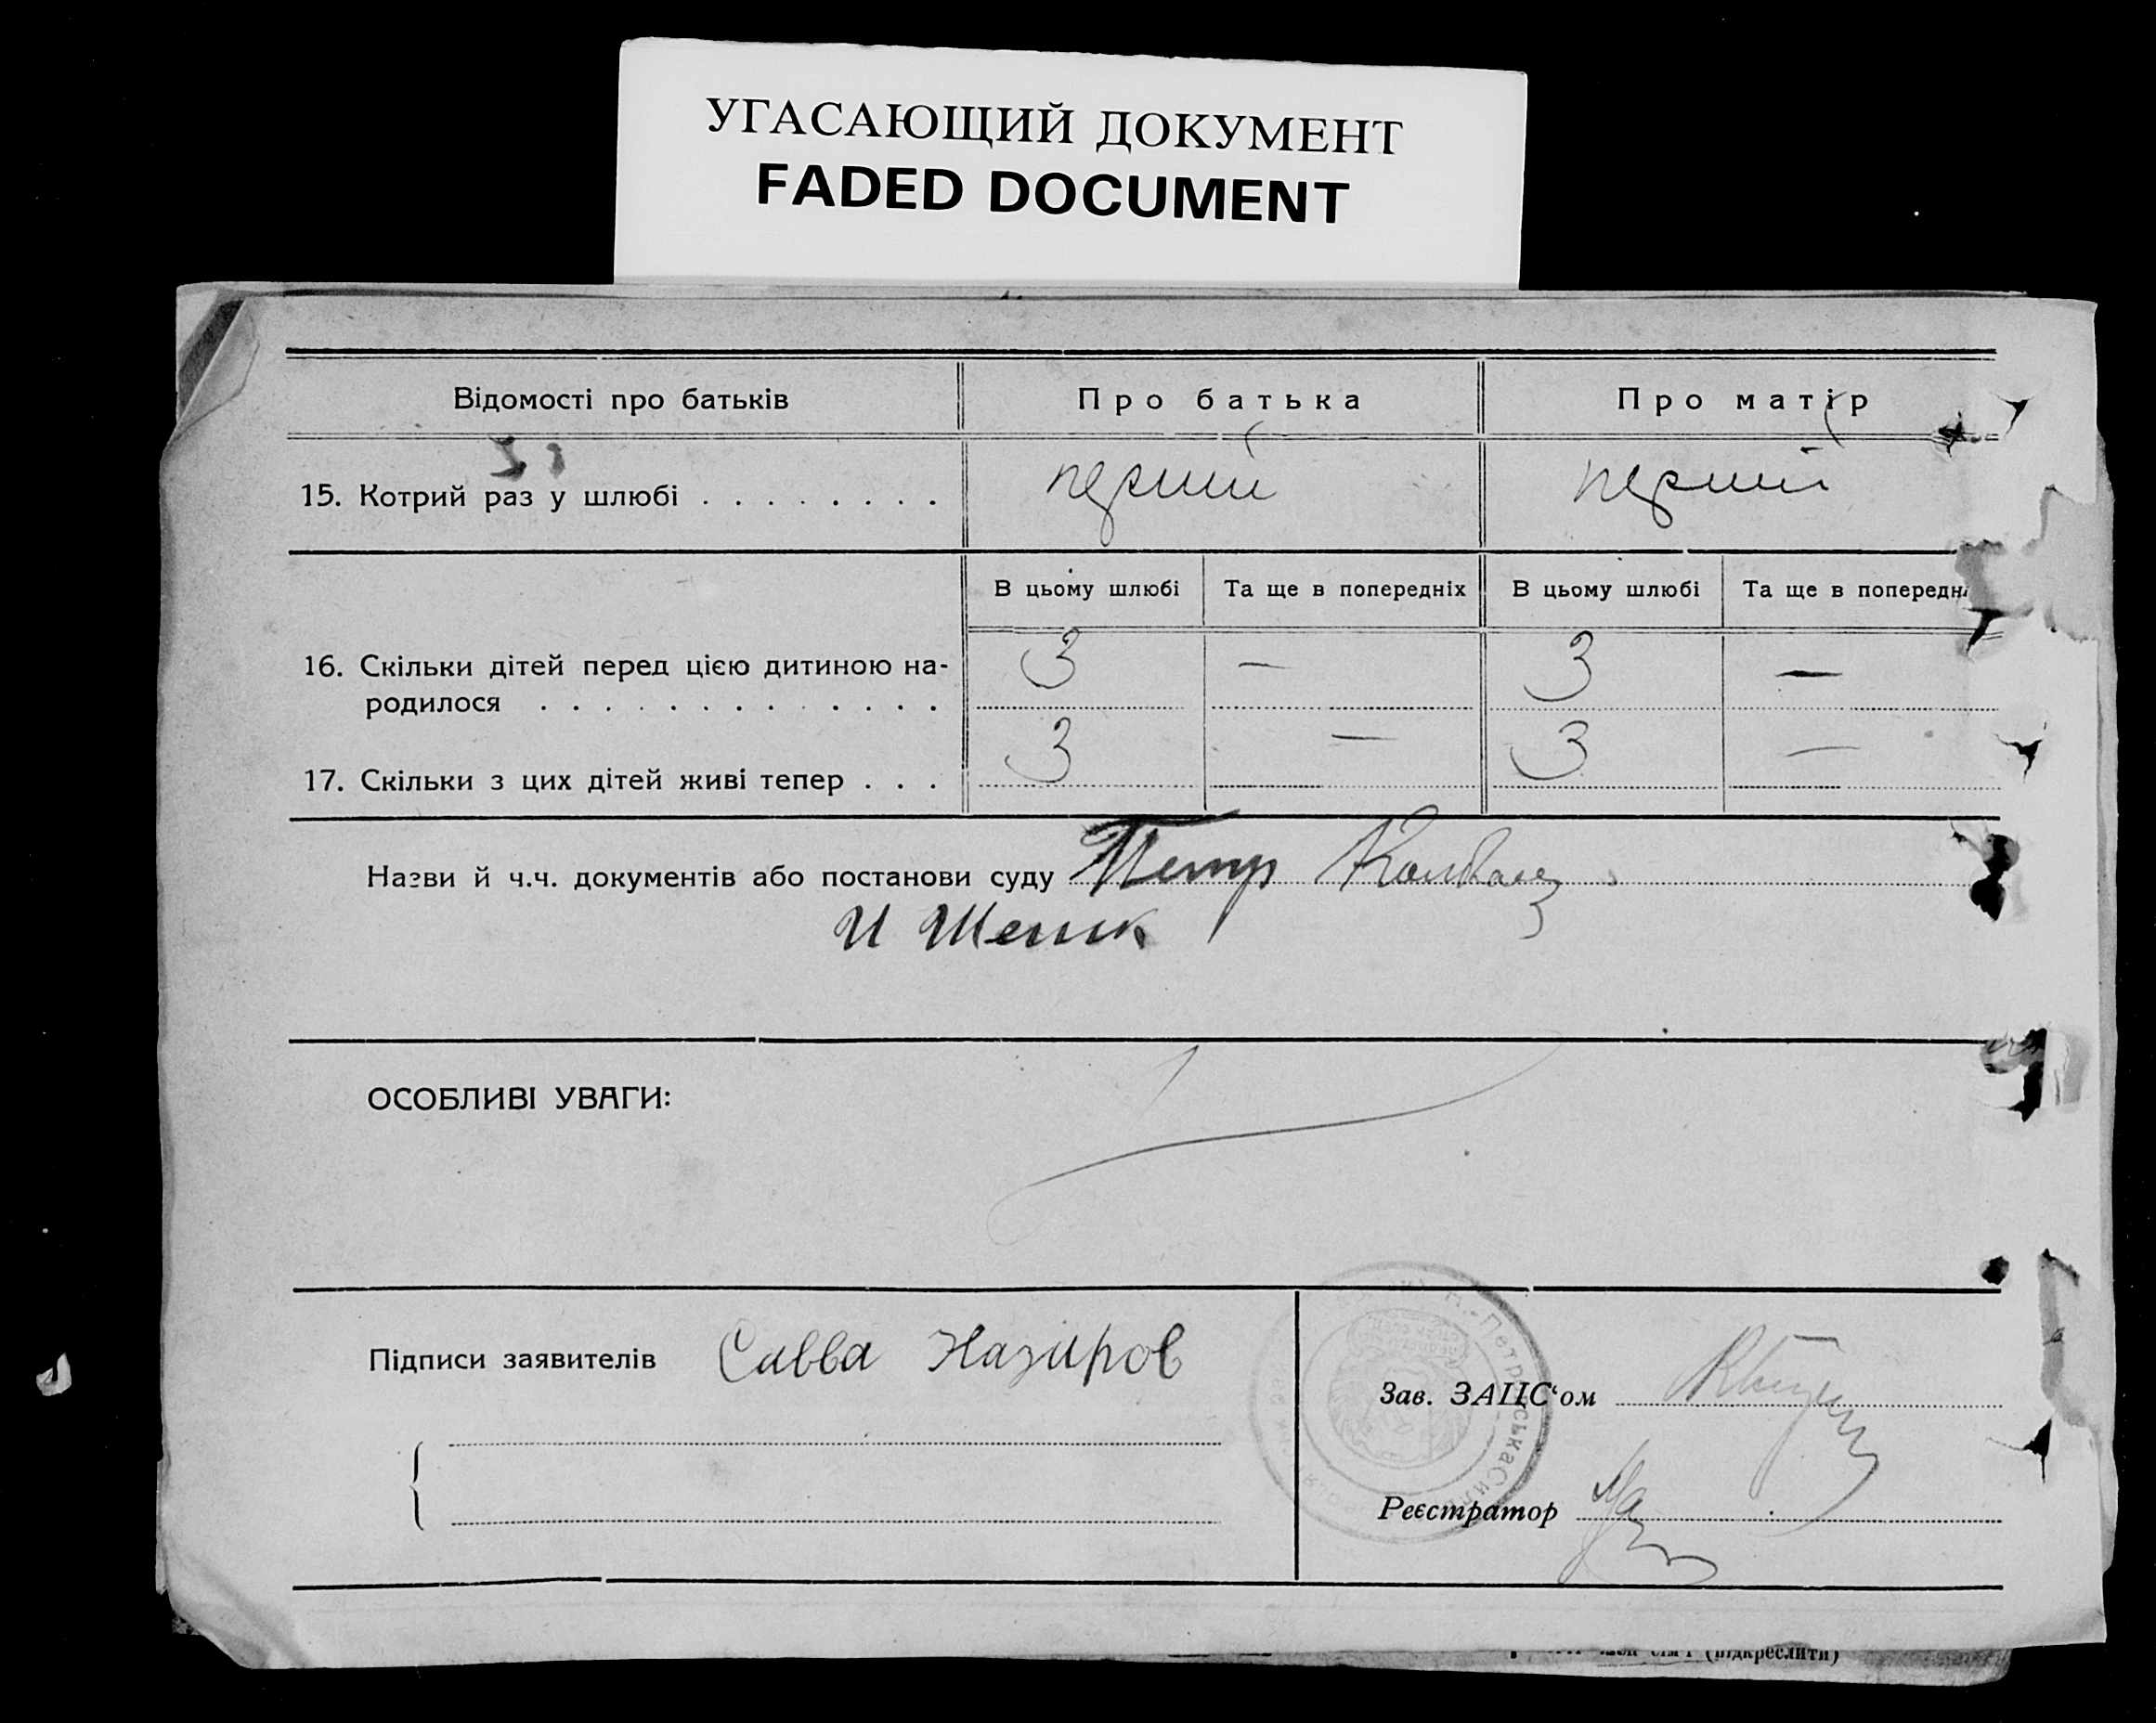 УГАСАЮЩИЙ ДОКУМЕНТ
FADED DOCUMENT
Відомості про батьків
Про батька
Про матір
15. Котрий раз у шлюбі . . . . . . . .
перший
перший
В цьому шлюбі
Та ще в попередніх
В цьому шлюбі
Та ще в попередн
16. Скільки дітей перед цією дитиною на-
родилося . . . . . . . . . . . . .
3
—
3
—
17. Скільки з цих дітей живі тепер . . .
3
—
3
—
Назви й ч.ч. документів або постанови суду Петр
И Шепик
ОСОБЛИВІ УВАГИ:
Підписи заявителів Савва Назаров
Зав. ЗАЦС‘ом
Реєстратор
(підкреслити)